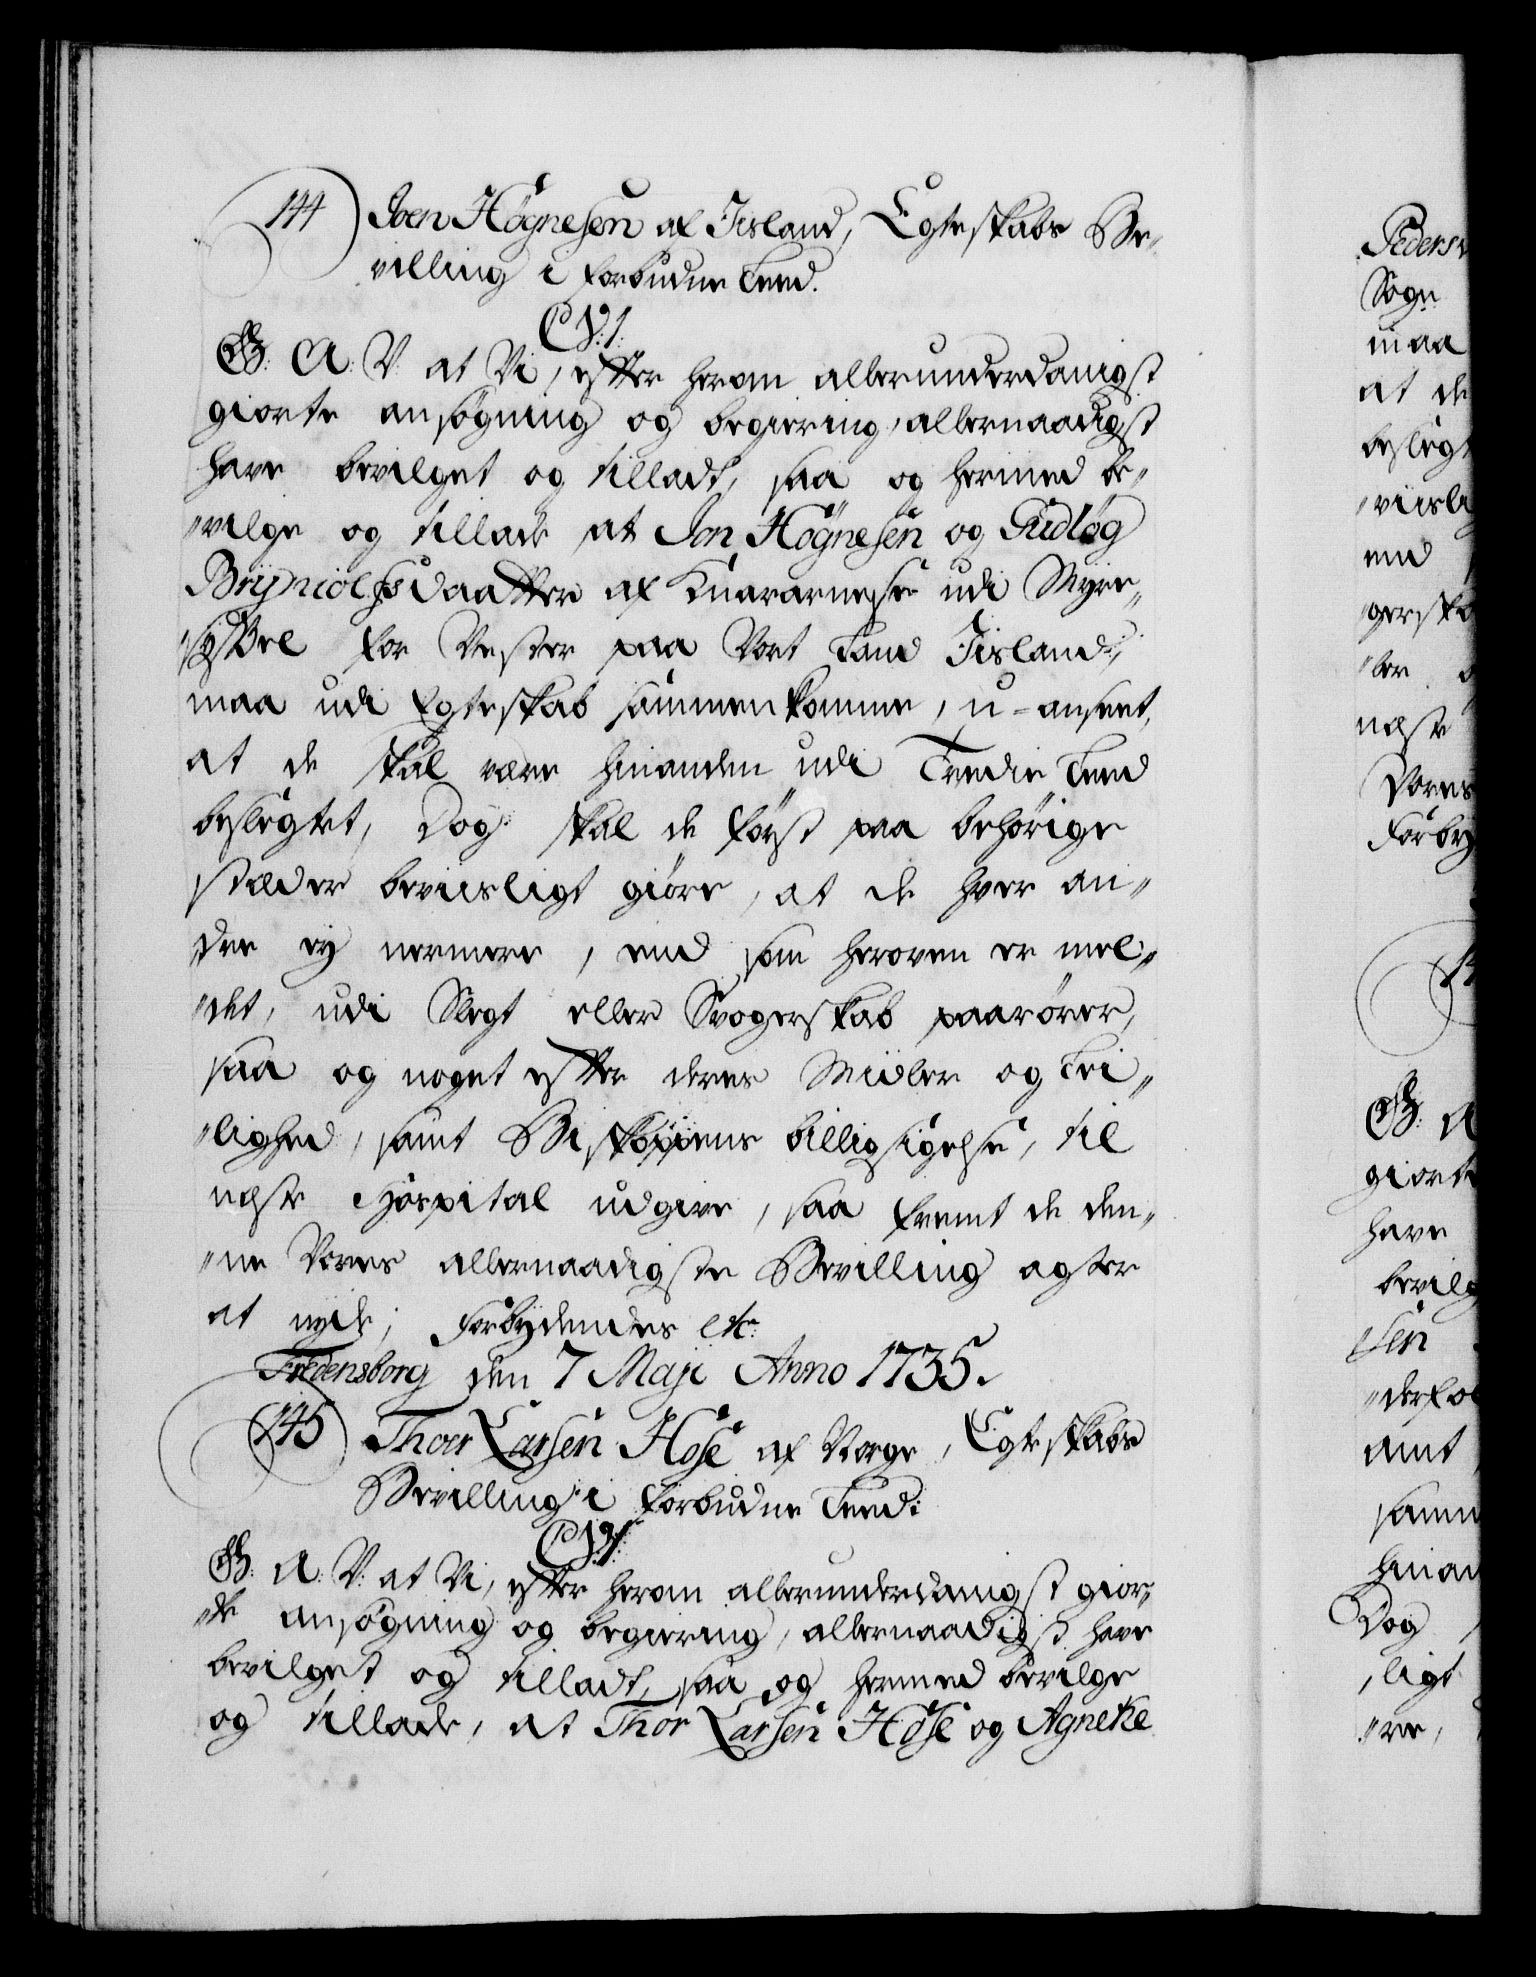 144 Joen Høgnesen af Iisland, Egteskabs Be-
villing i forbudne Leed.
C. VI.
G. A. V. at Vi, efter herom allerunderdanigst
giorte ansøgning og begiering, allernaadigst
have bevilget og tilladt, saa og hermed be-
vilge og tillade at Jon Høgnesen og Gudløg
Bryniolfsdaatter af Knararnesse udi Myre-
syssel for Vester paa Vort Land Iisland,
maa udi Egteskab sammenkomme, u-anseet,
at de skal være hinanden udi Tredie Leed
beslegtet, Dog skal de først paa behørige
stæder beviisligt giøre, at de hver an-
dre ey nermere, end som heroven er mel-
det, udi Slegt eller Svogerskab paarører,
saa og noget efter deres Midler og Lei-
lighed, samt Biskoppens billigsigelse, til
næste Hospital udgive, saa fremt de den-
ne Vores allernaadigste Bevilling agter
at nyde; Forbydendes etc:
Fredensborg den 7 Maji Anno 1735.
145 Thoer Larsen Hose af Norge, Egteskabs
Bevilling i forbudne Leed:
C. VI.
G. A. V. at Vi, efter herom allerunderdanigst gior-
de ansøgning og begiering, allernaadigst have
bevilget og tilladt, saa og hermed bevilge
og tillade, at Thor Larsen Hose og Agnete
Peders
Sogn
maa
at de
beslegt
viisli
end
gerska
ler
næste
Vores
Forby
G. A
giort
have
bevilg
sen
derfo
amt
samm
hinan
Dog
ligt
re,